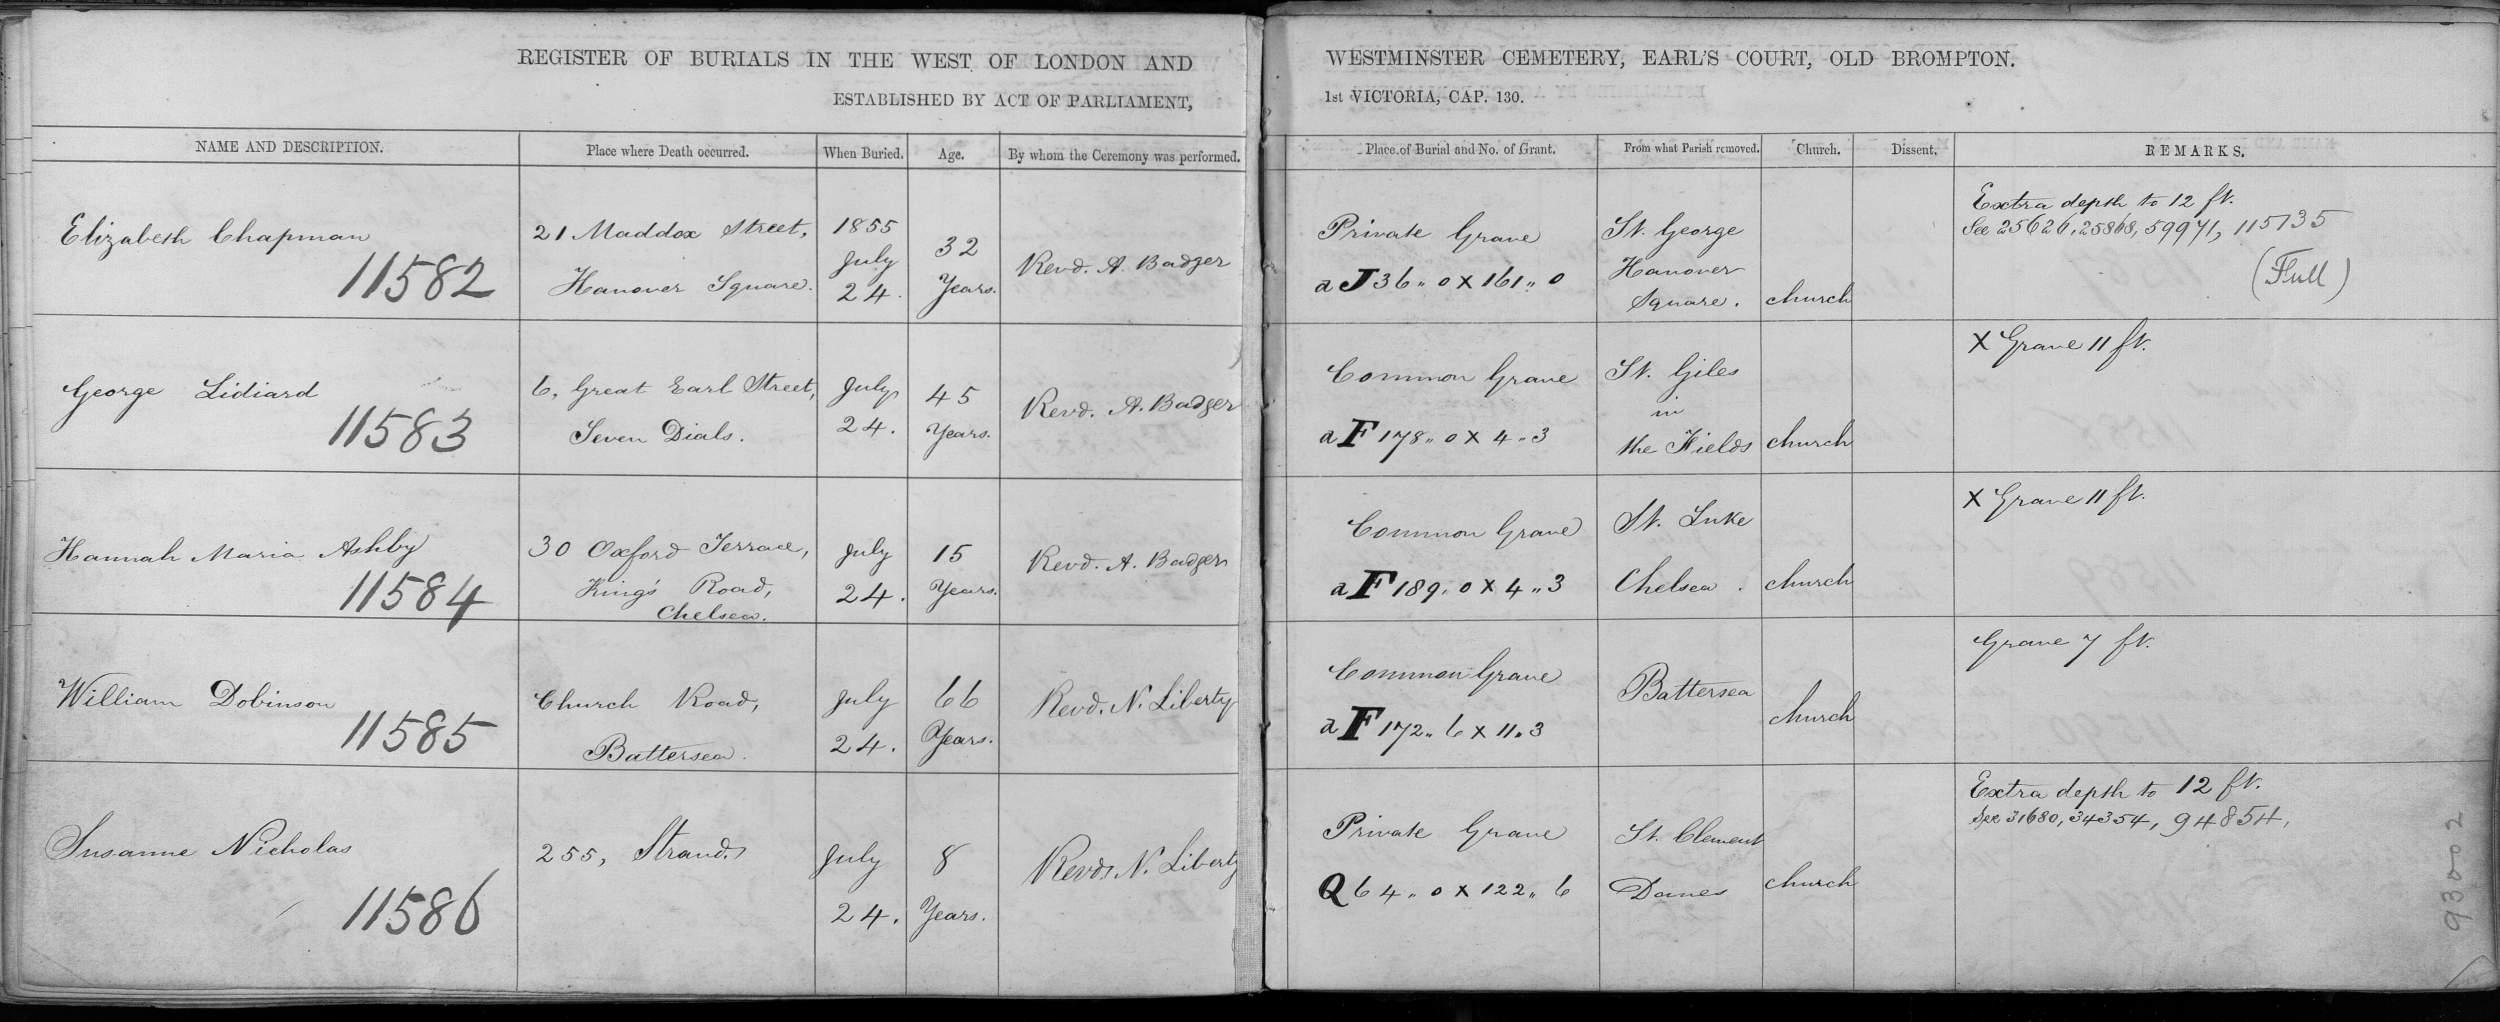 REGISTER OF BURIALS IN THE WEST OF LONDON AND WESTMINSTER CEMETERY, EARL'S COURT, OLD BROMPTON.
ESTABLISHED BY ACT OF PARLIAMENT, 1st VICTORIA, CAP. 130.
NAME AND DESCRIPTION. Place where Death occurred. When Buried. Age. By whom the Ceremony was performed. Place of Burial and No. of Grant. From what Parish removed. Church. Dissent. REMARKS.
Elizabeth Chapman
11582
21 Maddox Street,
Hanover Square.
1855
July
24.
32
Years.
Revd. A. Badger
Private Grave
a J 36 „ 0 X 161 „ 0
St. George
Hanover
Square.
church
Extra depth to 12 ft.
See 25626, 25868, 59971, 115135
(Full)
George Lidiard
11583
6, Great Earl Street,
Seven Dials.
July
24.
45
Years.
Revd. A. Badger
Common Grave
a F 178 „ 0 X 4 „ 3
St. Giles
in
the Fields
church
X Grave 11 ft.
Hannah Maria Ashby
11584
30 Oxford Terrace,
King's Road,
Chelsea.
July
24.
15
Years.
Revd. A. Badger
Common Grave
a F 189 „ 0 X 4 „ 3
St. Luke
Chelsea.
church
X Grave 11 ft.
William Dobinson
11585
Church Road,
Battersea.
July
24.
66
Years.
Revd. N. Liberty
Common Grave
a F 172 „ 6 X 11 „ 3
Battersea
church
Grave 7 ft.
Susanne Nicholas
11586
255, Strand.
July
24.
8
Years.
Revd. N. Liberty
Private Grave
Q 64 „ 0 X 122 „ 6
St. Clement
Danes
church
Extra depth to 12 ft.
See 31680, 34354, 94854,
93002